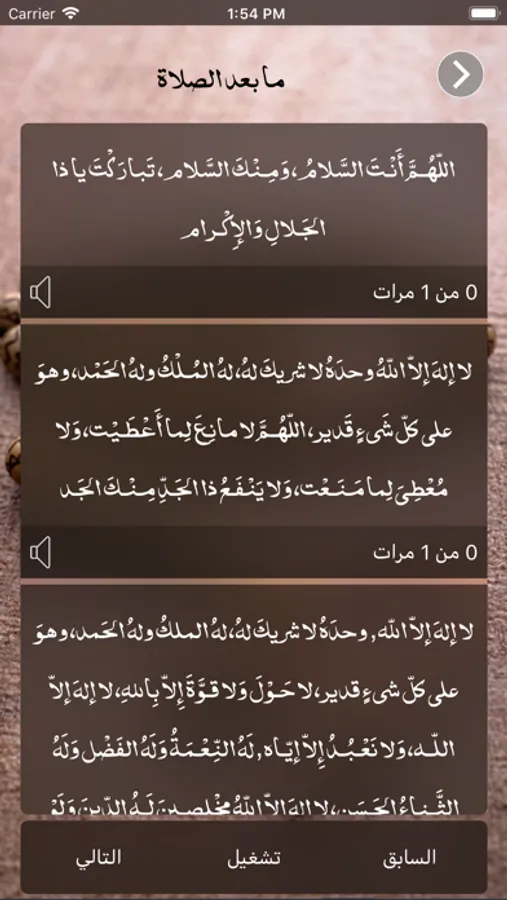 Carrier 1:54 PM
ما بعد الصلاة
اللّهُـمَّ أَنْـتَ السَّلامُ، وَمِـنْكَ السَّلام، تَبارَكْتَ يا ذا
الجَـلالِ وَالإِكْـرام
0 من 1 مرات
لا إلهَ إلاّ اللّهُ وحدَهُ لا شريكَ لهُ، لهُ المُـلْكُ ولهُ الحَمْد، وهوَ
على كلّ شَيءٍ قَدير، اللّهُـمَّ لا مانِعَ لِما أَعْطَـيْت، وَلا
مُعْطِـيَ لِما مَـنَعْت، وَلا يَنْفَـعُ ذا الجَـدِّ مِنْـكَ الجَد
0 من 1 مرات
لا إلهَ إلاّ اللّه, وحدَهُ لا شريكَ لهُ، لهُ الملكُ ولهُ الحَمد، وهوَ
على كلّ شيءٍ قدير، لا حَـوْلَ وَلا قـوَّةَ إِلاّ بِاللهِ، لا إلهَ إلاّ
اللّـه، وَلا نَعْـبُـدُ إِلاّ إيّـاه, لَهُ النِّعْـمَةُ وَلَهُ الفَضْل وَلَهُ
الثَّـناءُ الحَـسَن، لا إلهَ إلاّ اللّهُ مخْلِصـينَ لَـهُ الدِّينَ وَلَوْ
السابق تشغيل التالي